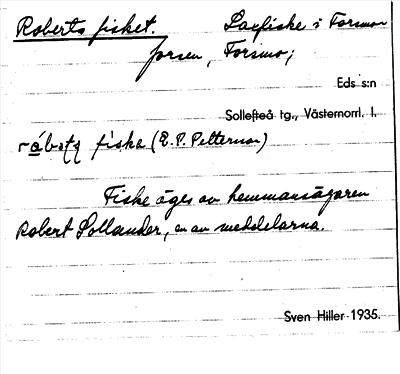 Roberts fisket. Laxfiske i Forsmo
forsen, Forsmo;
Eds s:n
Sollefteå tg., Västernorrl. l.
fiska (E. P. Petterson)
Fiske äges av hemmansägaren
Robert Sollander, en av meddelarna.
Sven Hiller 1935.